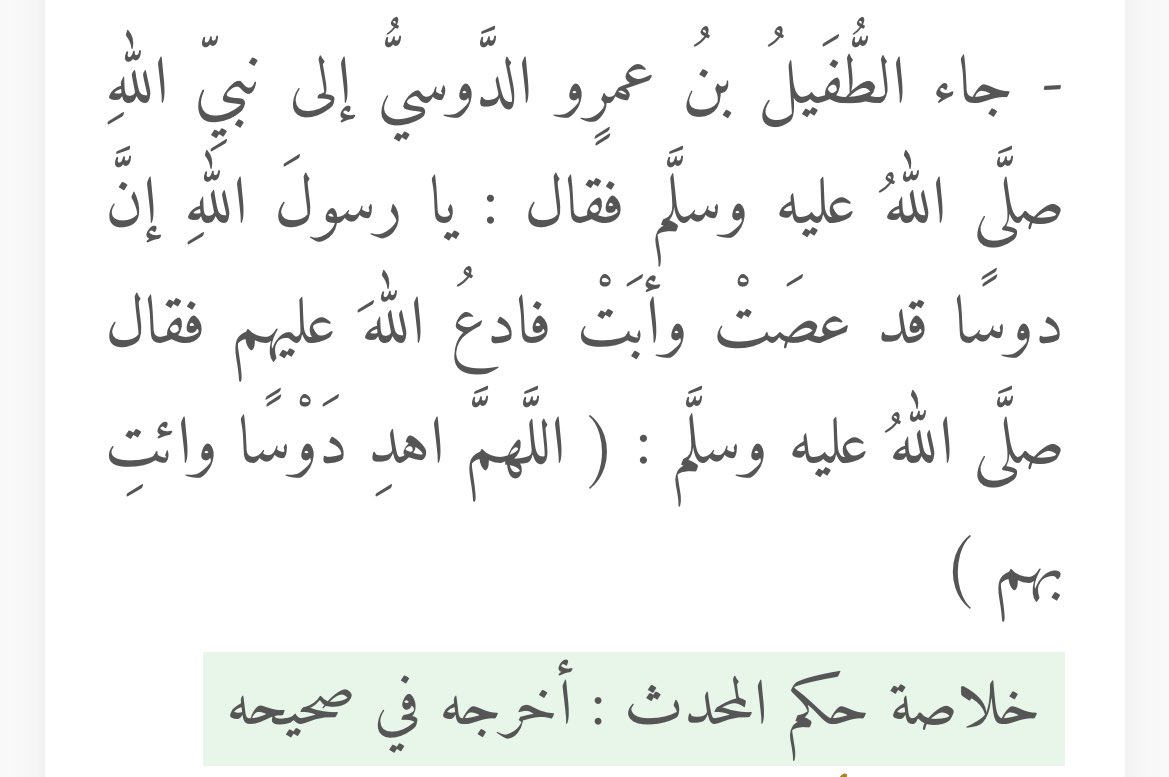 - جاء الطُّفَيلُ بنُ عمرٍو الدَّوسيُّ إلى نبيِّ اللهِ
صلَّى اللهُ عليه وسلَّم فقال : يا رسولَ اللهِ إنَّ
دوسًا قد عصَتْ وأبَتْ فادعُ اللهَ عليهم فقال
صلَّى اللهُ عليه وسلَّم : ( اللَّهمَّ اهدِ دَوْسًا وائتِ
بهم )
خلاصة حكم المحدث : أخرجه في صحيحه